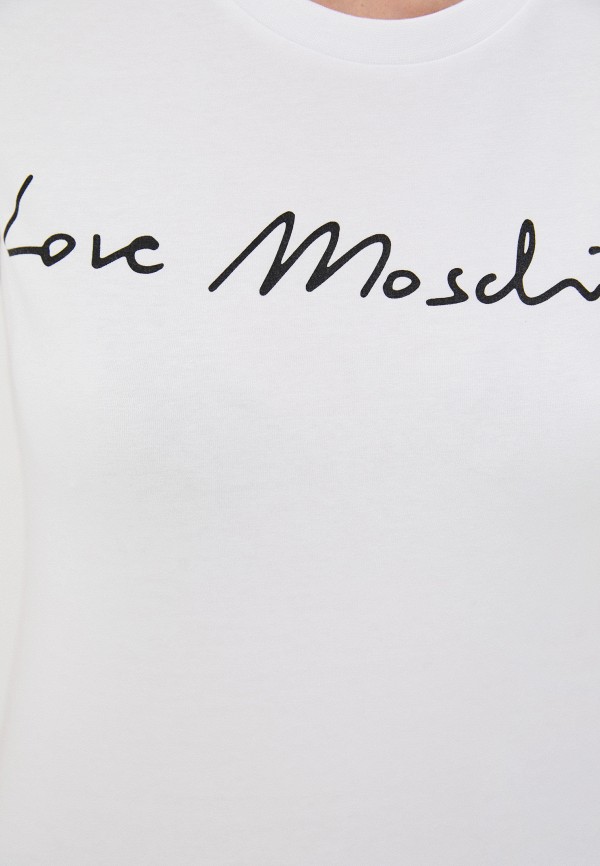 Love Moschi